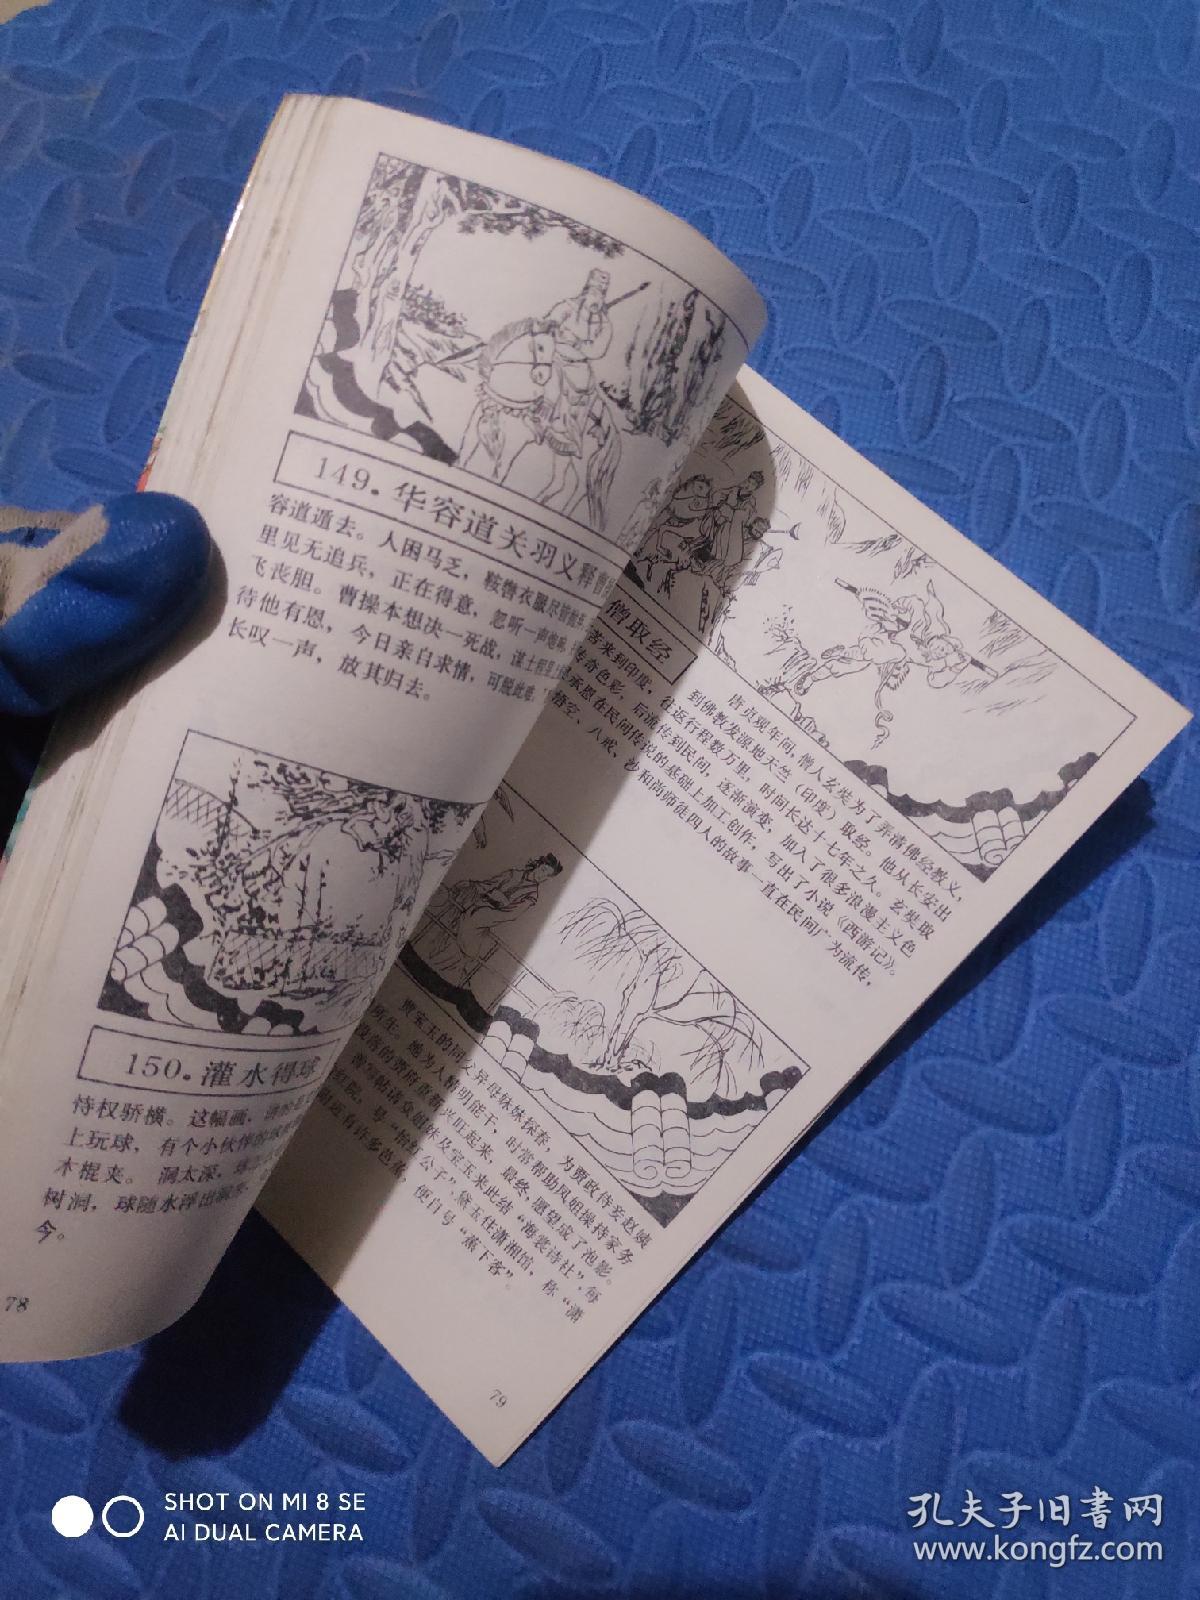 149.华容道关羽义释曹
容道遁去。人困马乏，鞍辔衣服尽
里见无追兵，正在得意，忽听一声炮响，
飞丧胆。曹操本想决一死战，谋士程昱
待他有恩，今日亲自求情，可脱此难。
长叹一声，放其归去。
150.灌水得球
恃权骄横。这幅画，
上玩球，有个小伙伴
木棍夹。洞太深，球
树洞，球随水浮出洞
今。
78
僧取经
唐贞观年间，僧人玄奘为了弄清佛经教义，
到佛教发源地天竺（印度）取经。他从长安出
苦来到印度，往返行程数万里，时间长达十七年之久。玄奘取
传奇色彩，后流传到民间，逐渐演变，加入了很多浪漫主义色
承恩在民间传说的基础上加工创作，写出了小说《西游记》。
悟空、八戒、沙和尚师徒四人的故事一直在民间广为流传，
贾宝玉的同父异母妹妹探春，为贾政侍妾赵姨
所生。她为人精明能干，时常帮助凤姐操持家务
没落的贾府重新兴旺起来，最终，愿望成了泡影。
曾写帖请众姐妹及宝玉来此结“海棠诗社”，每
红院，号“怡红公子”，黛玉住潇湘馆，称“潇
和还有许多芭蕉，便自号“蕉下客”。
79
SHOT ON MI 8 SE
AI DUAL CAMERA
孔夫子旧書网
www.kongfz.com